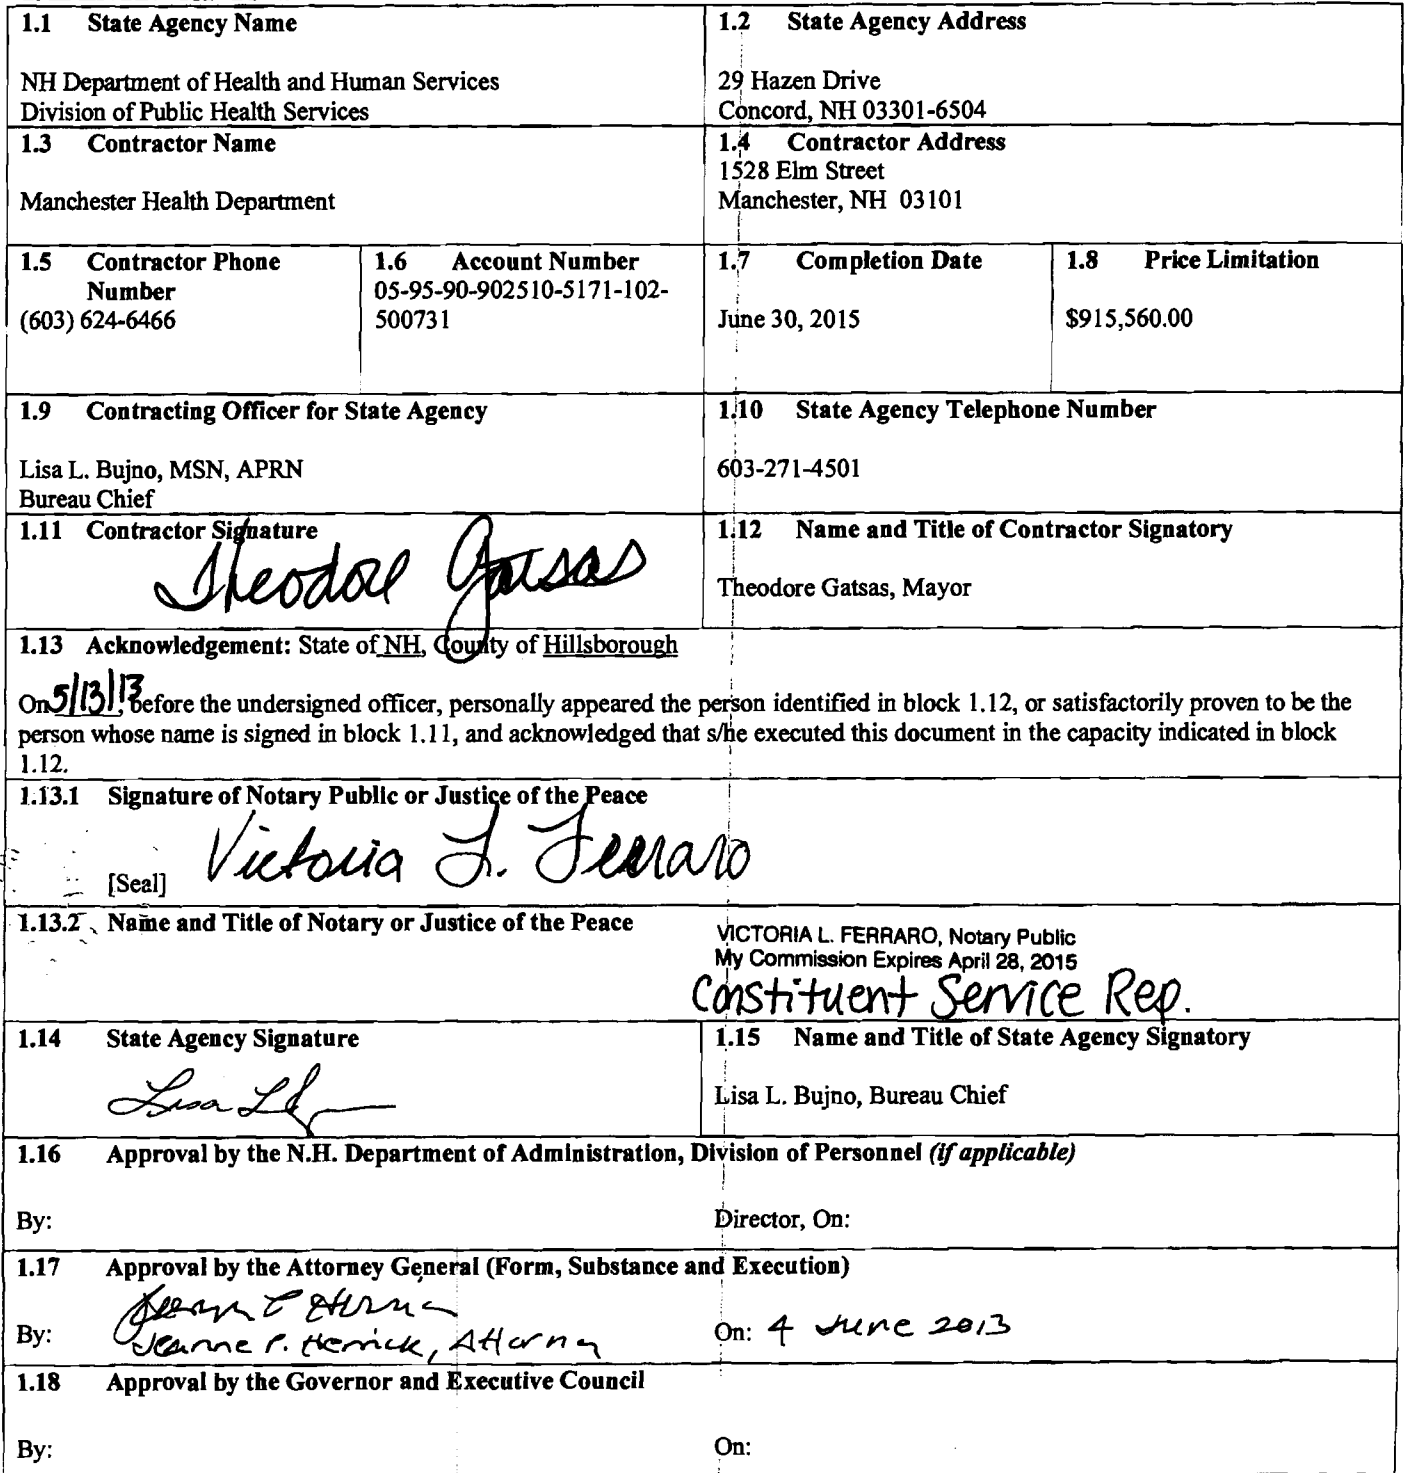 1.1 State Agency Name
NH Department of Health and Human Services
Division of Public Health Services
1.2 State Agency Address
29 Hazen Drive
Concord, NH 03301-6504
1.3 Contractor Name
Manchester Health Department
1.4 Contractor Address
1528 Elm Street
Manchester, NH 03101
1.5 Contractor Phone
Number
(603) 624-6466
1.6 Account Number
05-95-90-902510-5171-102-
500731
1.7 Completion Date
June 30, 2015
1.8 Price Limitation
$915,560.00
1.9 Contracting Officer for State Agency
Lisa L. Bujno, MSN, APRN
Bureau Chief
1.10 State Agency Telephone Number
603-271-4501
1.11 Contractor Signature
Theodore Gatsas
1.12 Name and Title of Contractor Signatory
Theodore Gatsas, Mayor
1.13 Acknowledgement: State of NH, County of Hillsborough
On 5/13/13, before the undersigned officer, personally appeared the person identified in block 1.12, or satisfactorily proven to be the
person whose name is signed in block 1.11, and acknowledged that s/he executed this document in the capacity indicated in block
1.12.
1.13.1 Signature of Notary Public or Justice of the Peace
Victoria L. Ferraro
[Seal]
1.13.2 Name and Title of Notary or Justice of the Peace
VICTORIA L. FERRARO, Notary Public
My Commission Expires April 28, 2015
Constituent Service Rep.
1.14 State Agency Signature
Lisa L
1.15 Name and Title of State Agency Signatory
Lisa L. Bujno, Bureau Chief
1.16 Approval by the N.H. Department of Administration, Division of Personnel (if applicable)
By:
Director, On:
1.17 Approval by the Attorney General (Form, Substance and Execution)
By: Jeanne P. Herrick, Attorney
On: 4 June 2013
1.18 Approval by the Governor and Executive Council
By:
On: